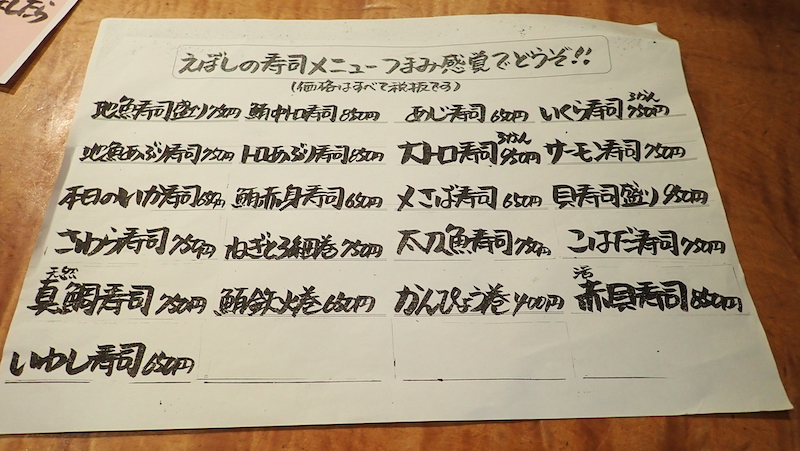 えぼしの寿司メニューつまみ感覚でどうぞ!!
(価格はすべて税抜です)
地魚寿司盛り750円 鮪中トロ寿司850円 あじ寿司650円 いくら寿司750円
地魚あぶり寿司750円 トロあぶり寿司850円 大トロ寿司950円 サーモン寿司750円
本日のいか寿司650円 鮪赤身寿司650円 〆さば寿司650円 貝寿司盛り950円
さわら寿司750円 ねぎとろ細巻750円 太刀魚寿司750円 こはだ寿司750円
天然真鯛寿司750円 鮪鉄火巻650円 かんぴょう巻400円 活赤貝寿司850円
いわし寿司650円